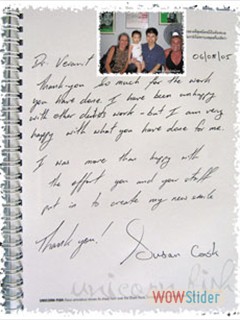 06/08/05
Dr. Veravit
Thank you so much for the work
you have done. I have been unhappy
with other dentists work - but I am very
happy with what you have done for me.
I was more than happy with
the effort you and your staff
put in to create my new smile
Thank you!
Susan Cook
unicorn fish
WOWSlider